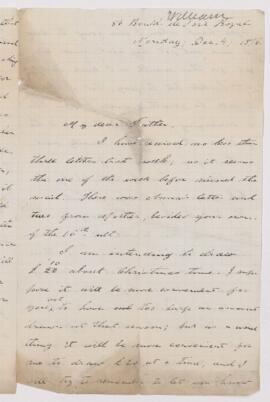 William
80 Boul'd de Port Royal
Monday, Dec. 4, 18
My dear Father,
I have received no less than
three letters last week, as it seems
the one of the week before missed the
mail. There was a letter and
two from Mother, besides your own
of the 16th ult.
I am intending to draw
£20 about Christmas time. I sup-
pose it will be more convenient for
you, not to have too large an amount
drawn at that season; but as a usual
thing it will be more convenient for
me to draw £20 at a time, and I
will try to remember to let you know